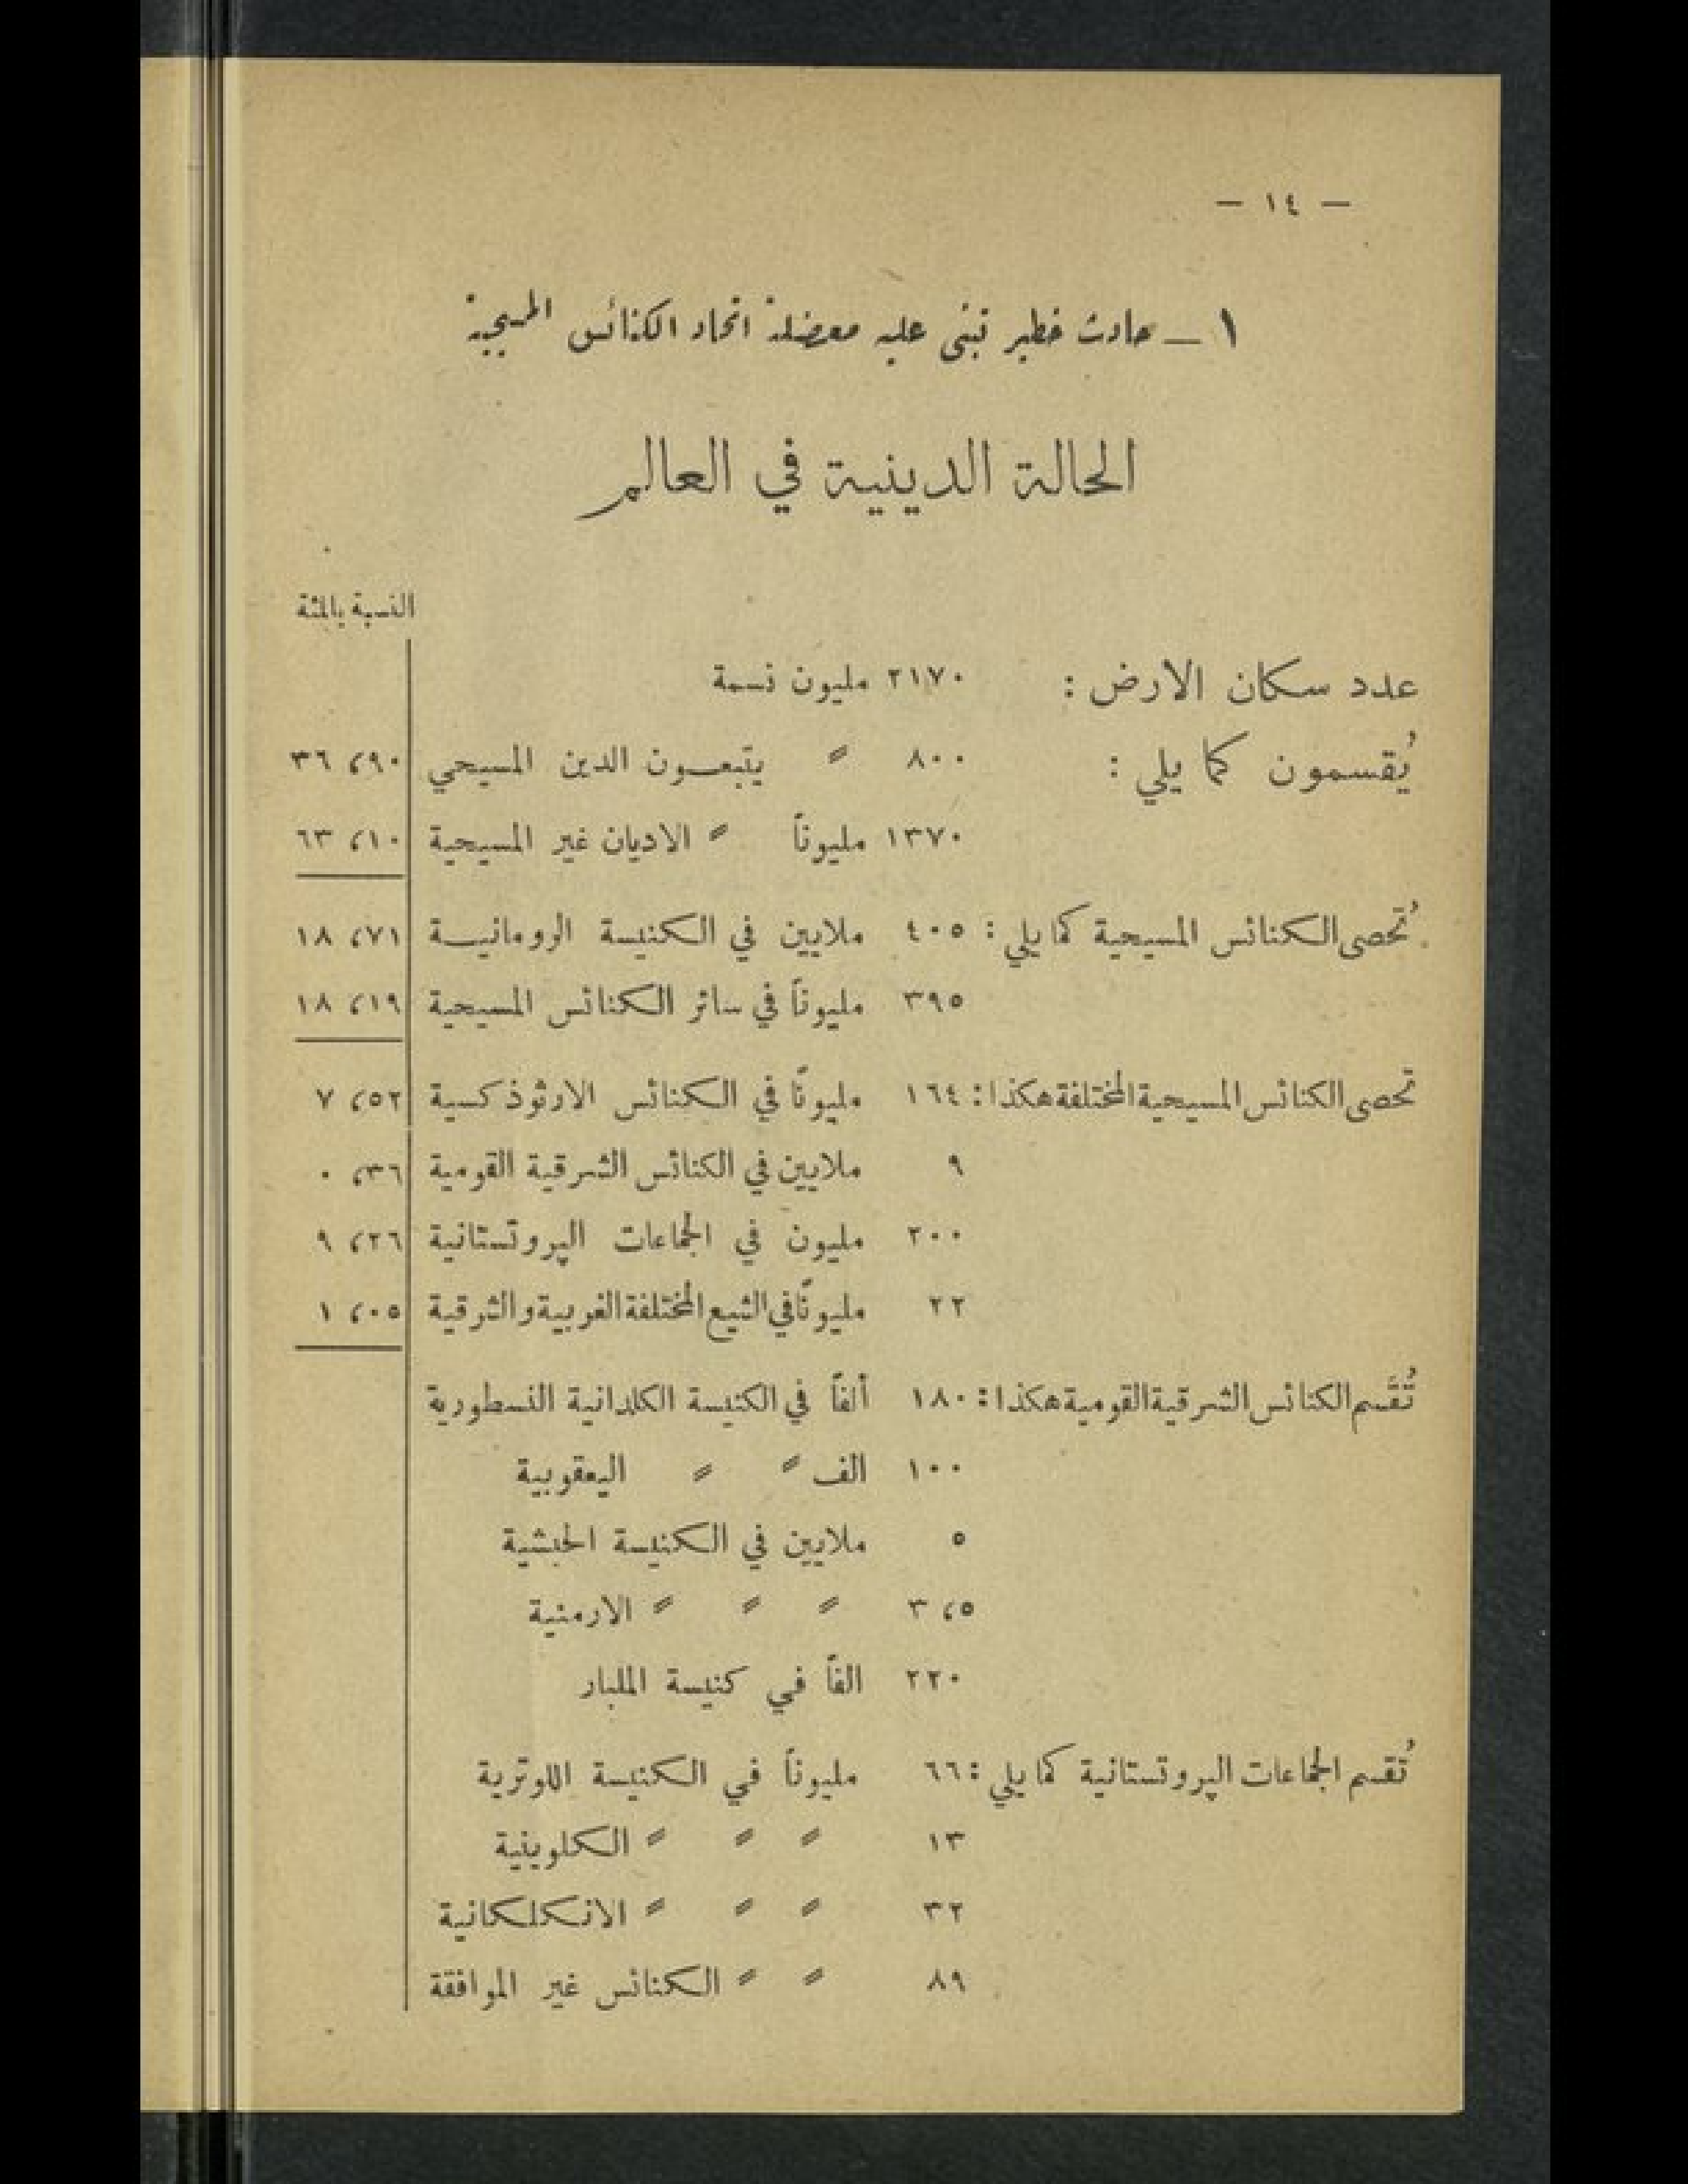 — ١٤ —
١ — حادث خطير تبنى عليه معضلة اتحاد الكنائس المسيحية
الحالة الدينية في العالم
النسبة بالمئة
عدد سكان الارض : ٢١٧٠ مليون نسمة
يُقسمون كما يلي : ٨٠٠ 〃 يتبعون الدين المسيحي ٣٦ ،٩٠
١٣٧٠ مليوناً 〃 الاديان غير المسيحية ٦٣ ،١٠
تُحصى الكنائس المسيحية كما يلي : ٤٠٥ ملايين في الكنيسة الرومانية ١٨ ،٧١
٣٩٥ مليوناً في سائر الكنائس المسيحية ١٨ ،١٩
تحصى الكنائس المسيحية المختلفة هكذا : ١٦٤ مليونًا في الكنائس الارثوذكسية ٧ ،٥٢
٩ ملايين في الكنائس الشرقية القومية ٠ ،٣٦
٢٠٠ مليون في الجماعات البروتستانية ٩ ،٢٦
٢٢ مليونًا في الشيع المختلفة الغربية والشرقية ١ ،٠٥
تُقَسم الكنائس الشرقية القومية هكذا : ١٨٠ ألفاً في الكنيسة الكلدانية النسطورية
١٠٠ الف 〃 〃 اليعقوبية
٥ ملايين في الكنيسة الحبشية
٣ ،٥ 〃 〃 〃 الارمنية
٢٢٠ الفاً في كنيسة الملبار
تُقسم الجماعات البروتستانية كما يلي : ٦٦ مليوناً في الكنيسة اللوترية
١٣ 〃 〃 〃 الكلوينية
٣٢ 〃 〃 〃 الانكلكانية
٨٩ 〃 〃 الكنائس غير الموافقة